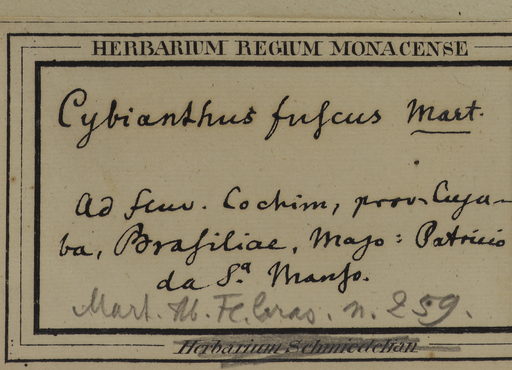 HERBARIUM REGIUM MONACENSE
Cybianthus fuſcus Mart.
Ad fluv. Cochim, prov. Cuya-
ba, Braſiliae. Majo: Patricio
da Sa. Manſo.
Mart. Hb. Fl. bras. n. 259.
Herbarium Schmiedelian